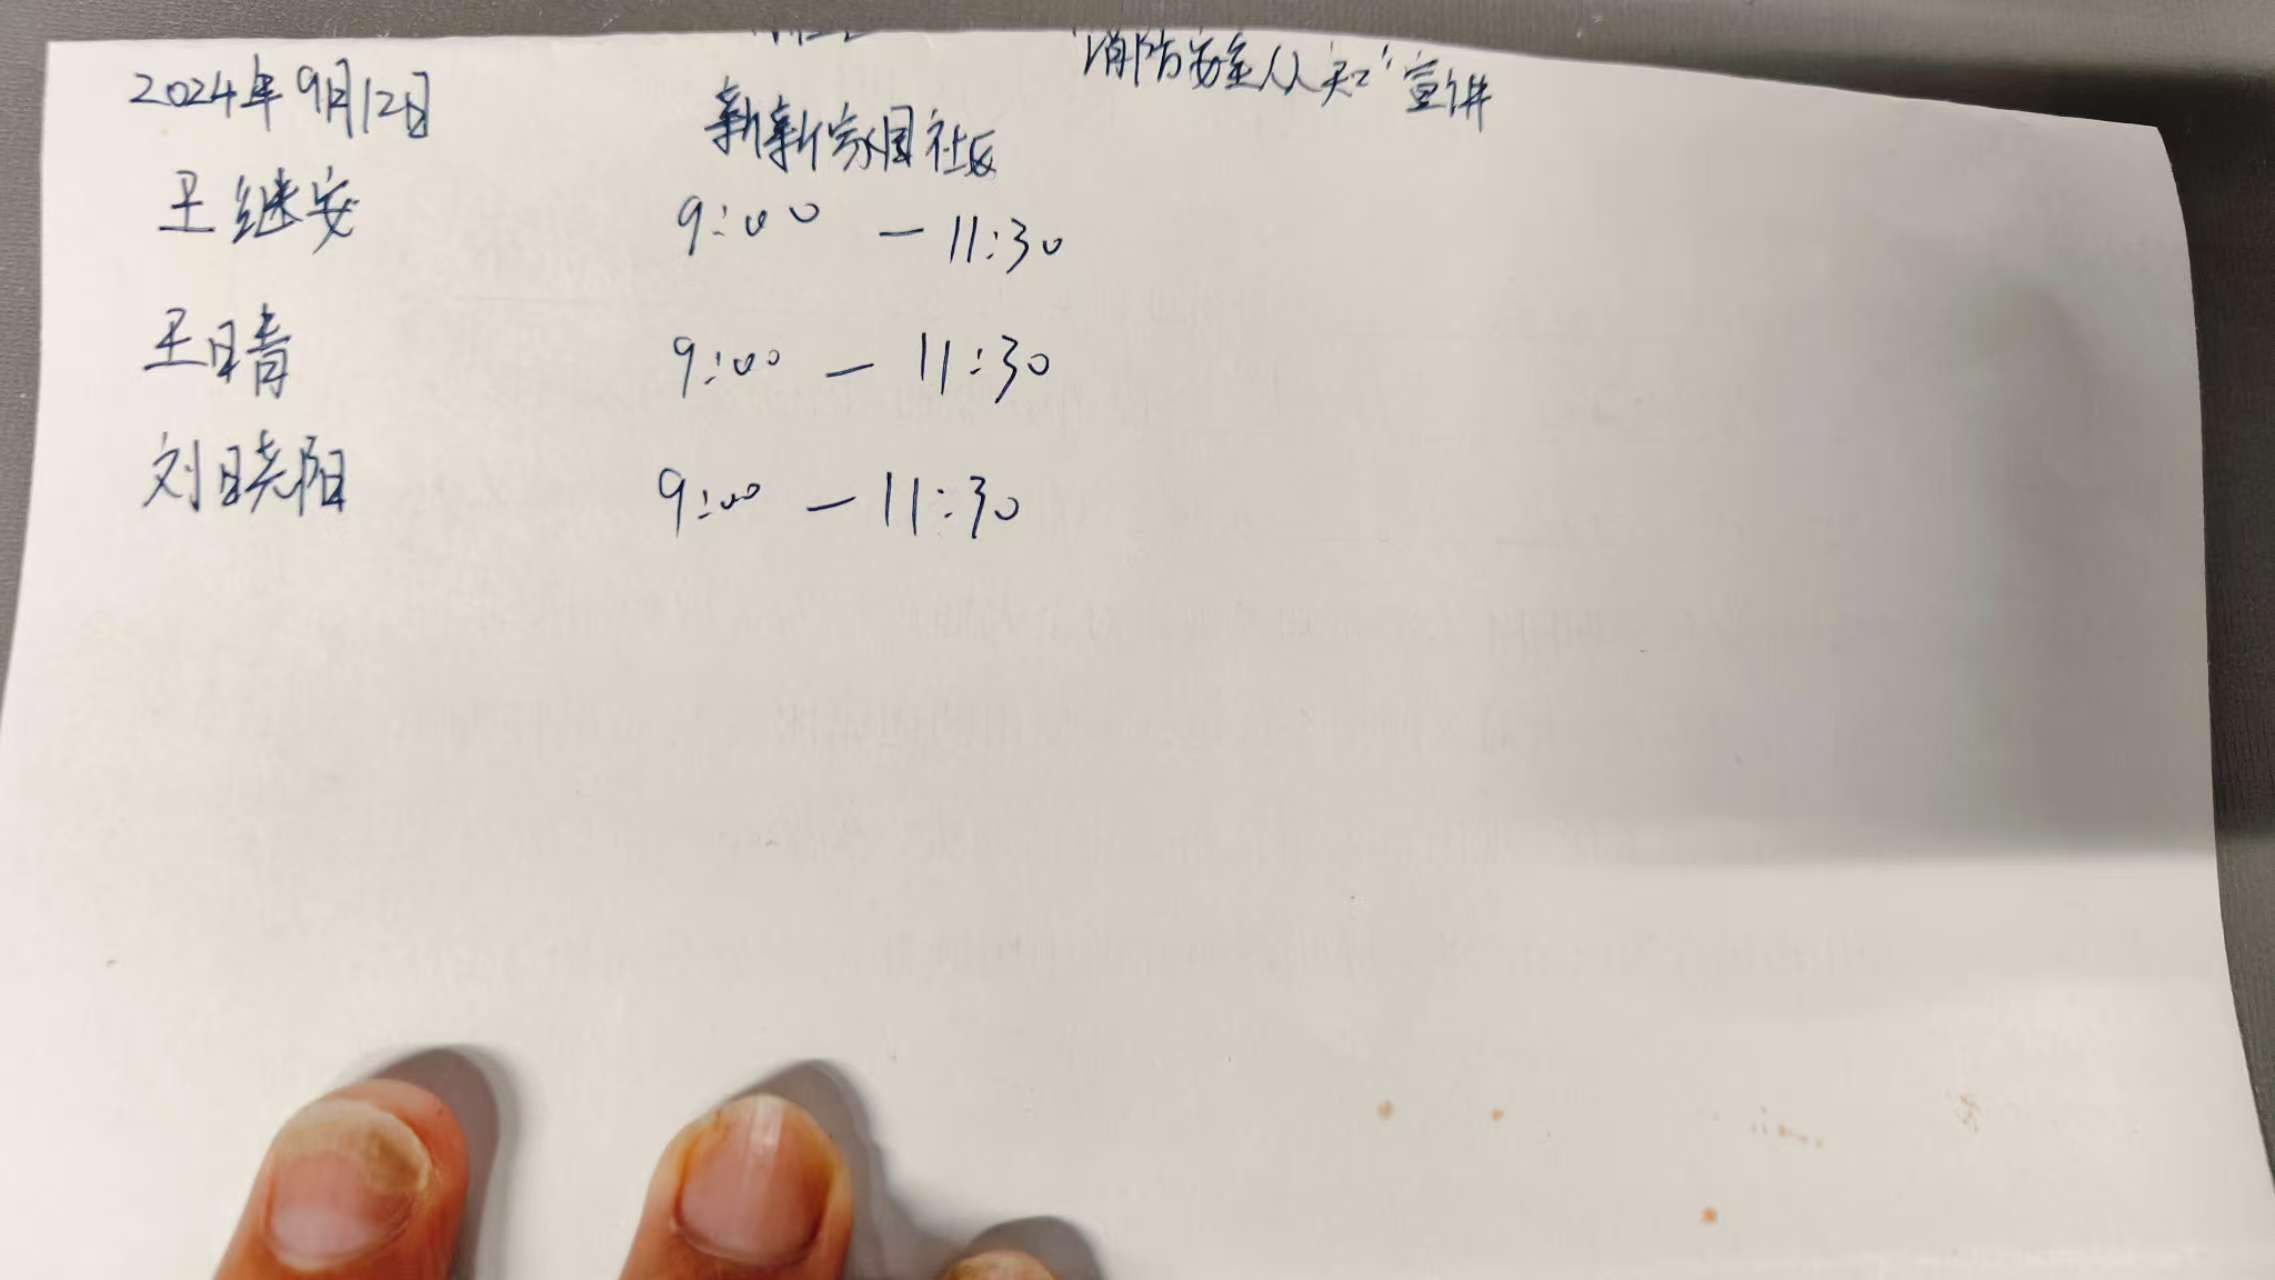 2024年9月12日
新新家园社区
"消防安全认知"宣讲
王继安
9:00 — 11:30
王晴
9:00 — 11:30
刘晓阳
9:00 — 11:30